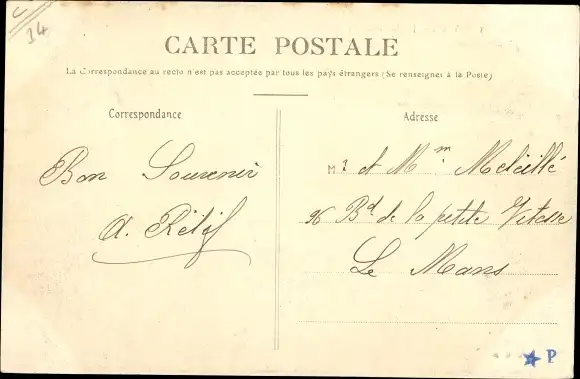 14
CARTE POSTALE
La Correspondance au recto n'est pas acceptée par tous les pays étrangers (Se renseigner à la Poste)
Correspondance
Adresse
Bon Souvenir
A. Rétif
Mr et Mm
Bd de la petite Vitesse
Le Mans
P